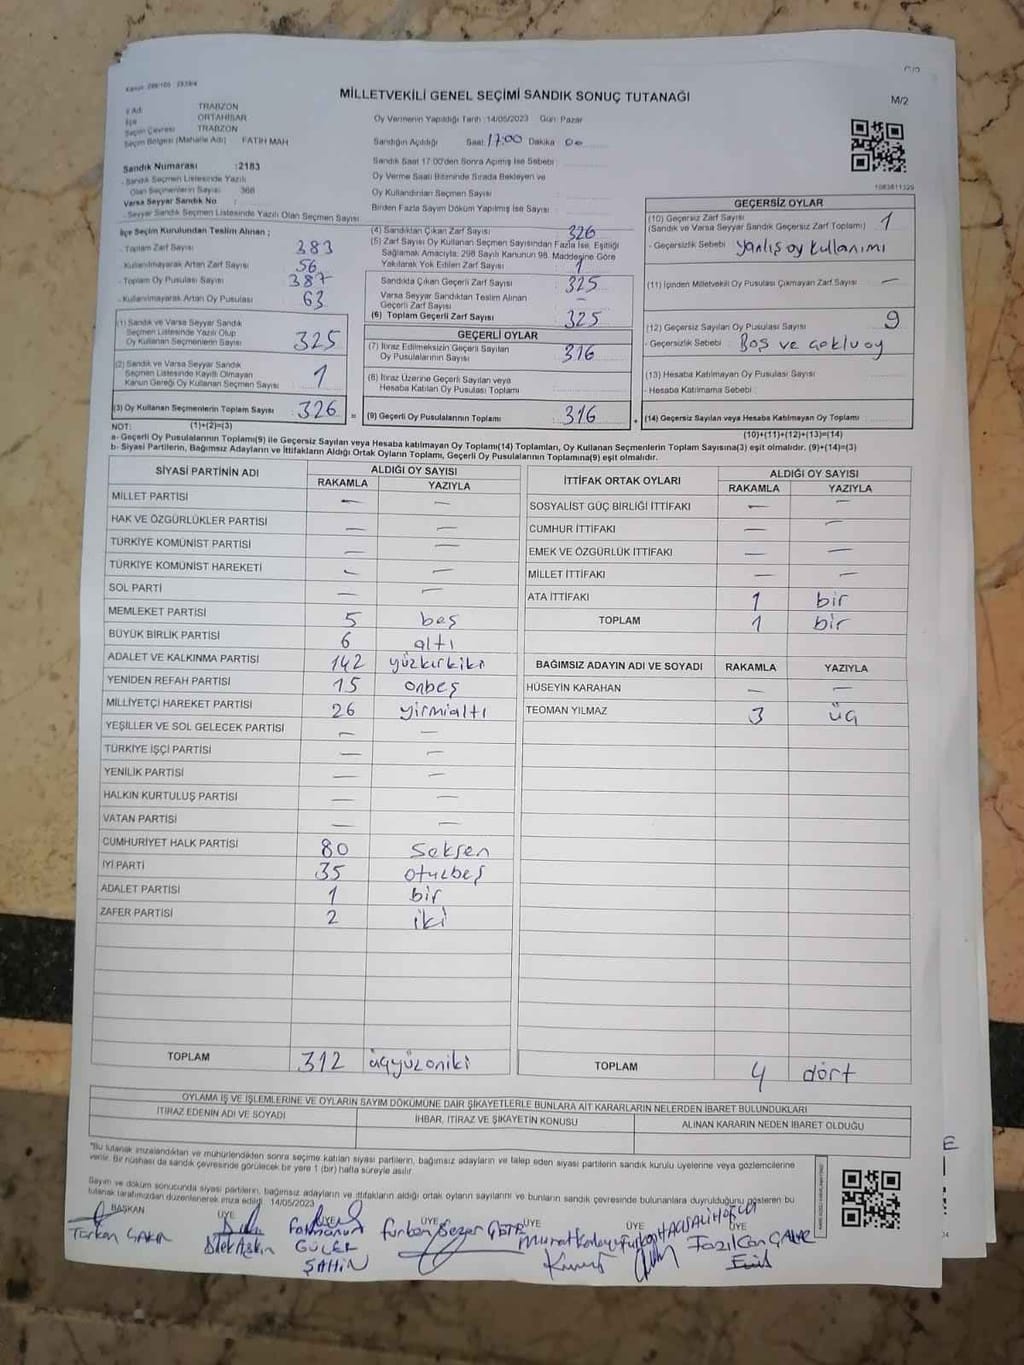 MİLLETVEKİLİ GENEL SEÇİMİ SANDIK SONUÇ TUTANAĞI
M/2
İl Adı TRABZON
İlçe ORTAHİSAR
Seçim Çevresi TRABZON
Seçim Bölgesi (Mahalle Adı) FATİH MAH
Oy Vermenin Yapıldığı Tarih :14/05/2023 Gün: Pazar
Sandığın Açıldığı Saat: 17:00 Dakika 00
Sandık Numarası :2183
- Sandık Seçmen Listesinde Yazılı Olan Seçmenlerin Sayısı 366
Varsa Seyyar Sandık No :
- Seyyar Sandık Seçmen Listesinde Yazılı Olan Seçmen Sayısı
Sandık Saat 17:00'den Sonra Açılmış İse Sebebi :
Oy Verme Saati Bitiminde Sırada Bekleyen ve
Oy Kullandırılan Seçmen Sayısı :
Birden Fazla Sayım Döküm Yapılmış İse Sayısı :
1083811329
İlçe Seçim Kurulundan Teslim Alınan ;
- Toplam Zarf Sayısı 383
- Kullanılmayarak Artan Zarf Sayısı 56
- Toplam Oy Pusulası Sayısı 387
- Kullanılmayarak Artan Oy Pusulası 63
(1) Sandık ve Varsa Seyyar Sandık
Seçmen Listesinde Yazılı Olup
Oy Kullanan Seçmenlerin Sayısı 325
(2) Sandık ve Varsa Seyyar Sandık
Seçmen Listesinde Kayıtlı Olmayan
Kanun Gereği Oy Kullanan Seçmen Sayısı 1
(3) Oy Kullanan Seçmenlerin Toplam Sayısı 326
(4) Sandıktan Çıkan Zarf Sayısı 326
(5) Zarf Sayısı Oy Kullanan Seçmen Sayısından Fazla İse, Eşitliği
Sağlamak Amacıyla; 298 Sayılı Kanunun 98. Maddesine Göre
Yakılarak Yok Edilen Zarf Sayısı 1
Sandıkta Çıkan Geçerli Zarf Sayısı 325
Varsa Seyyar Sandıktan Teslim Alınan
Geçerli Zarf Sayısı –
(6) Toplam Geçerli Zarf Sayısı 325
GEÇERLİ OYLAR
(7) İtiraz Edilmeksizin Geçerli Sayılan
Oy Pusulalarının Sayısı 316
(8) İtiraz Üzerine Geçerli Sayılan veya
Hesaba Katılan Oy Pusulası Toplamı
(9) Geçerli Oy Pusulalarının Toplamı 316
GEÇERSİZ OYLAR
(10) Geçersiz Zarf Sayısı
(Sandık ve Varsa Seyyar Sandık Geçersiz Zarf Toplamı) 1
- Geçersizlik Sebebi yanlış oy kullanımı
(11) İçinden Milletvekili Oy Pusulası Çıkmayan Zarf Sayısı —
(12) Geçersiz Sayılan Oy Pusulası Sayısı 9
- Geçersizlik Sebebi Boş ve çoklu oy
(13) Hesaba Katılmayan Oy Pusulası Sayısı
- Hesaba Katılmama Sebebi
(14) Geçersiz Sayılan veya Hesaba Katılmayan Oy Toplamı
NOT: (1)+(2)=(3) (10)+(11)+(12)+(13)=(14)
a- Geçerli Oy Pusulalarının Toplamı(9) ile Geçersiz Sayılan veya Hesaba katılmayan Oy Toplamı(14) Toplamları, Oy Kullanan Seçmenlerin Toplam Sayısına(3) eşit olmalıdır. (9)+(14)=(3)
b- Siyasi Partilerin, Bağımsız Adayların ve İttifakların Aldığı Ortak Oyların Toplamı, Geçerli Oy Pusulalarının Toplamına(9) eşit olmalıdır.
SİYASİ PARTİNİN ADI ALDIĞI OY SAYISI
RAKAMLA YAZIYLA
MİLLET PARTİSİ — —
HAK VE ÖZGÜRLÜKLER PARTİSİ — —
TÜRKİYE KOMÜNİST PARTİSİ — —
TÜRKİYE KOMÜNİST HAREKETİ — —
SOL PARTİ — —
MEMLEKET PARTİSİ 5 beş
BÜYÜK BİRLİK PARTİSİ 6 altı
ADALET VE KALKINMA PARTİSİ 142 yüzkırkiki
YENİDEN REFAH PARTİSİ 15 onbeş
MİLLİYETÇİ HAREKET PARTİSİ 26 yirmialtı
YEŞİLLER VE SOL GELECEK PARTİSİ — —
TÜRKİYE İŞÇİ PARTİSİ — —
YENİLİK PARTİSİ — —
HALKIN KURTULUŞ PARTİSİ — —
VATAN PARTİSİ — —
CUMHURİYET HALK PARTİSİ 80 Seksen
İYİ PARTİ 35 otuzbeş
ADALET PARTİSİ 1 bir
ZAFER PARTİSİ 2 iki
TOPLAM 312 üçyüzoniki
İTTİFAK ORTAK OYLARI ALDIĞI OY SAYISI
RAKAMLA YAZIYLA
SOSYALİST GÜÇ BİRLİĞİ İTTİFAKI — —
CUMHUR İTTİFAKI — —
EMEK VE ÖZGÜRLÜK İTTİFAKI — —
MİLLET İTTİFAKI — —
ATA İTTİFAKI 1 bir
TOPLAM 1 bir
BAĞIMSIZ ADAYIN ADI VE SOYADI RAKAMLA YAZIYLA
HÜSEYİN KARAHAN — —
TEOMAN YILMAZ 3 üç
TOPLAM 4 dört
OYLAMA İŞ VE İŞLEMLERİNE VE OYLARIN SAYIM DÖKÜMÜNE DAİR ŞİKAYETLERLE BUNLARA AİT KARARLARIN NELERDEN İBARET BULUNDUKLARI
İTİRAZ EDENİN ADI VE SOYADI İHBAR, İTİRAZ VE ŞİKAYETİN KONUSU ALINAN KARARIN NEDEN İBARET OLDUĞU
"Bu tutanak imzalandıktan ve mühürlendikten sonra seçime katılan siyasi partilerin, bağımsız adayların ve talep eden siyasi partilerin sandık kurulu üyelerine veya gözlemcilerine
verilir. Bir nüshası da sandık çevresinde görülecek bir yere 1 (bir) hafta süreyle asılır.
Sayım ve döküm sonucunda siyasi partilerin, bağımsız adayların ve ittifakların aldığı ortak oyların sayılarını ve bunların sandık çevresinde bulunanlara duyrulduğunu gösteren bu
tutanak tarafımızdan düzenlenerek imza edildi. 14/05/2023
BAŞKAN ÜYE ÜYE ÜYE ÜYE ÜYE ÜYE
GÜLER
ŞAHİN